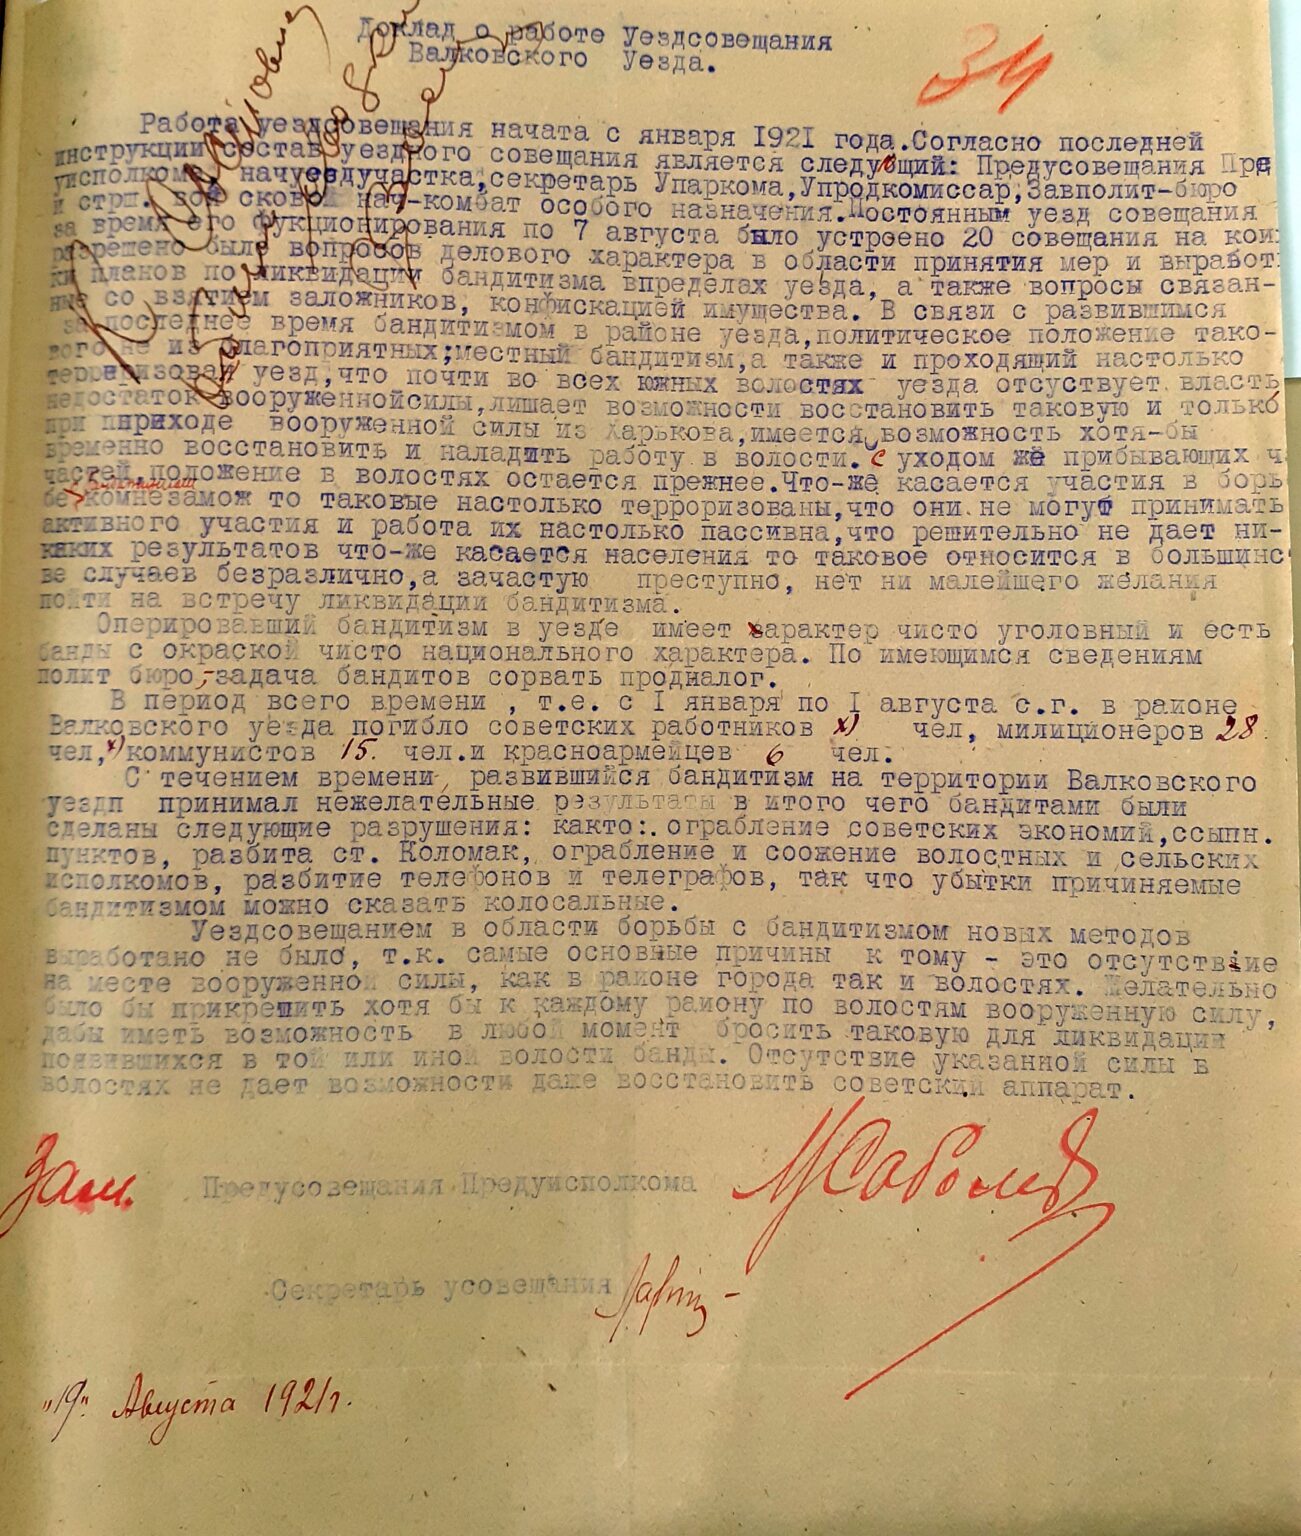 Доклад о работе Уездсовещания
Валковского Уезда.
34
Работа уездсовещания начата с января 1921 года.Согласно последней
инструкции состав уездного совещания является следующий: Предусовещания Пред
уисполкома, начуездучастка,секретарь Упаркома,Упродкомиссар,Завполит-бюро
нач-комбат особого назначения.Постоянным уезд совещания
за время его фукционирования по 7 августа было устроено 20 совещания на кои
разрешено было вопросов делового характера в области принятия мер и выработ
ки планов по ликвидации бандитизма впределах уезда, а также вопросы связан-
ные со взятием заложников, конфискацией имущества. В связи с развившимся
за последнее время бандитизмом в районе уезда,политическое положение тако-
вого не из благоприятных;местный бандитизм,а также и проходящий настолько
терреризовал уезд,что почти во всех южных волостях уезда отсуствует власть
недостаток вооруженнойсилы,лишает возможности восстановить таковую и только
при приходе вооруженной силы из Харькова,имеется возможность хотя-бы
временно восстановить и наладить работу в волости. с уходом же прибывающих ч
частей положение в волостях остается прежнее.Что-же касается участия в борь
бе комнезамож то таковые настолько терроризованы,что они не могут принимать
активного участия и работа их настолько пассивна,что решительно не дает ни-
каких результатов что-же касается населения то таковое относится в большинс
ве случаев безразлично,а зачастую преступно, нет ни малейшего желания
пойти на встречу ликвидации бандитизма.
Оперировавший бандитизм в уезде имеет характер чисто уголовный и есть
банды с окраской чисто национального характера. По имеющимся сведениям
полит бюро,-задача бандитов сорвать продналог.
В период всего времени , т.е. с I января по I августа с.г. в районе
Валковского уезда погибло советских работников х) чел, милиционеров 28
чел,х) коммунистов 15. чел.и красноармейцев 6 чел.
С течением времени, развившийся бандитизм на территории Валковского
уездп принимал нежелательные результаты в итого чего бандитами были
сделаны следующие разрушения: както:. ограбление советских экономий,ссыпн.
пунктов, разбита ст. Коломак, ограбление и соожение волостных и сельских
исполкомов, разбитие телефонов и телеграфов, так что убытки причиняемые
бандитизмом можно сказать колосальные.
Уездсовещанием в области борьбы с бандитизмом новых методов
выработано не было, т.к. самые основные причины к тому - это отсутствие
на месте вооруженной силы, как в районе города так и волостях. Желательно
было бы прикрепить хотя бы к каждому району по волостям вооруженную силу,
дабы иметь возможность в любой момент бросить таковую для ликвидации
появившихся в той или иной волости банды. Отсутствие указанной силы в
волостях не дает возможности даже восстановить советский аппарат.
Зам. Предусовещания Предуисполкома МСоболев
Секретарь усовещания
"19" Августа 1921г.